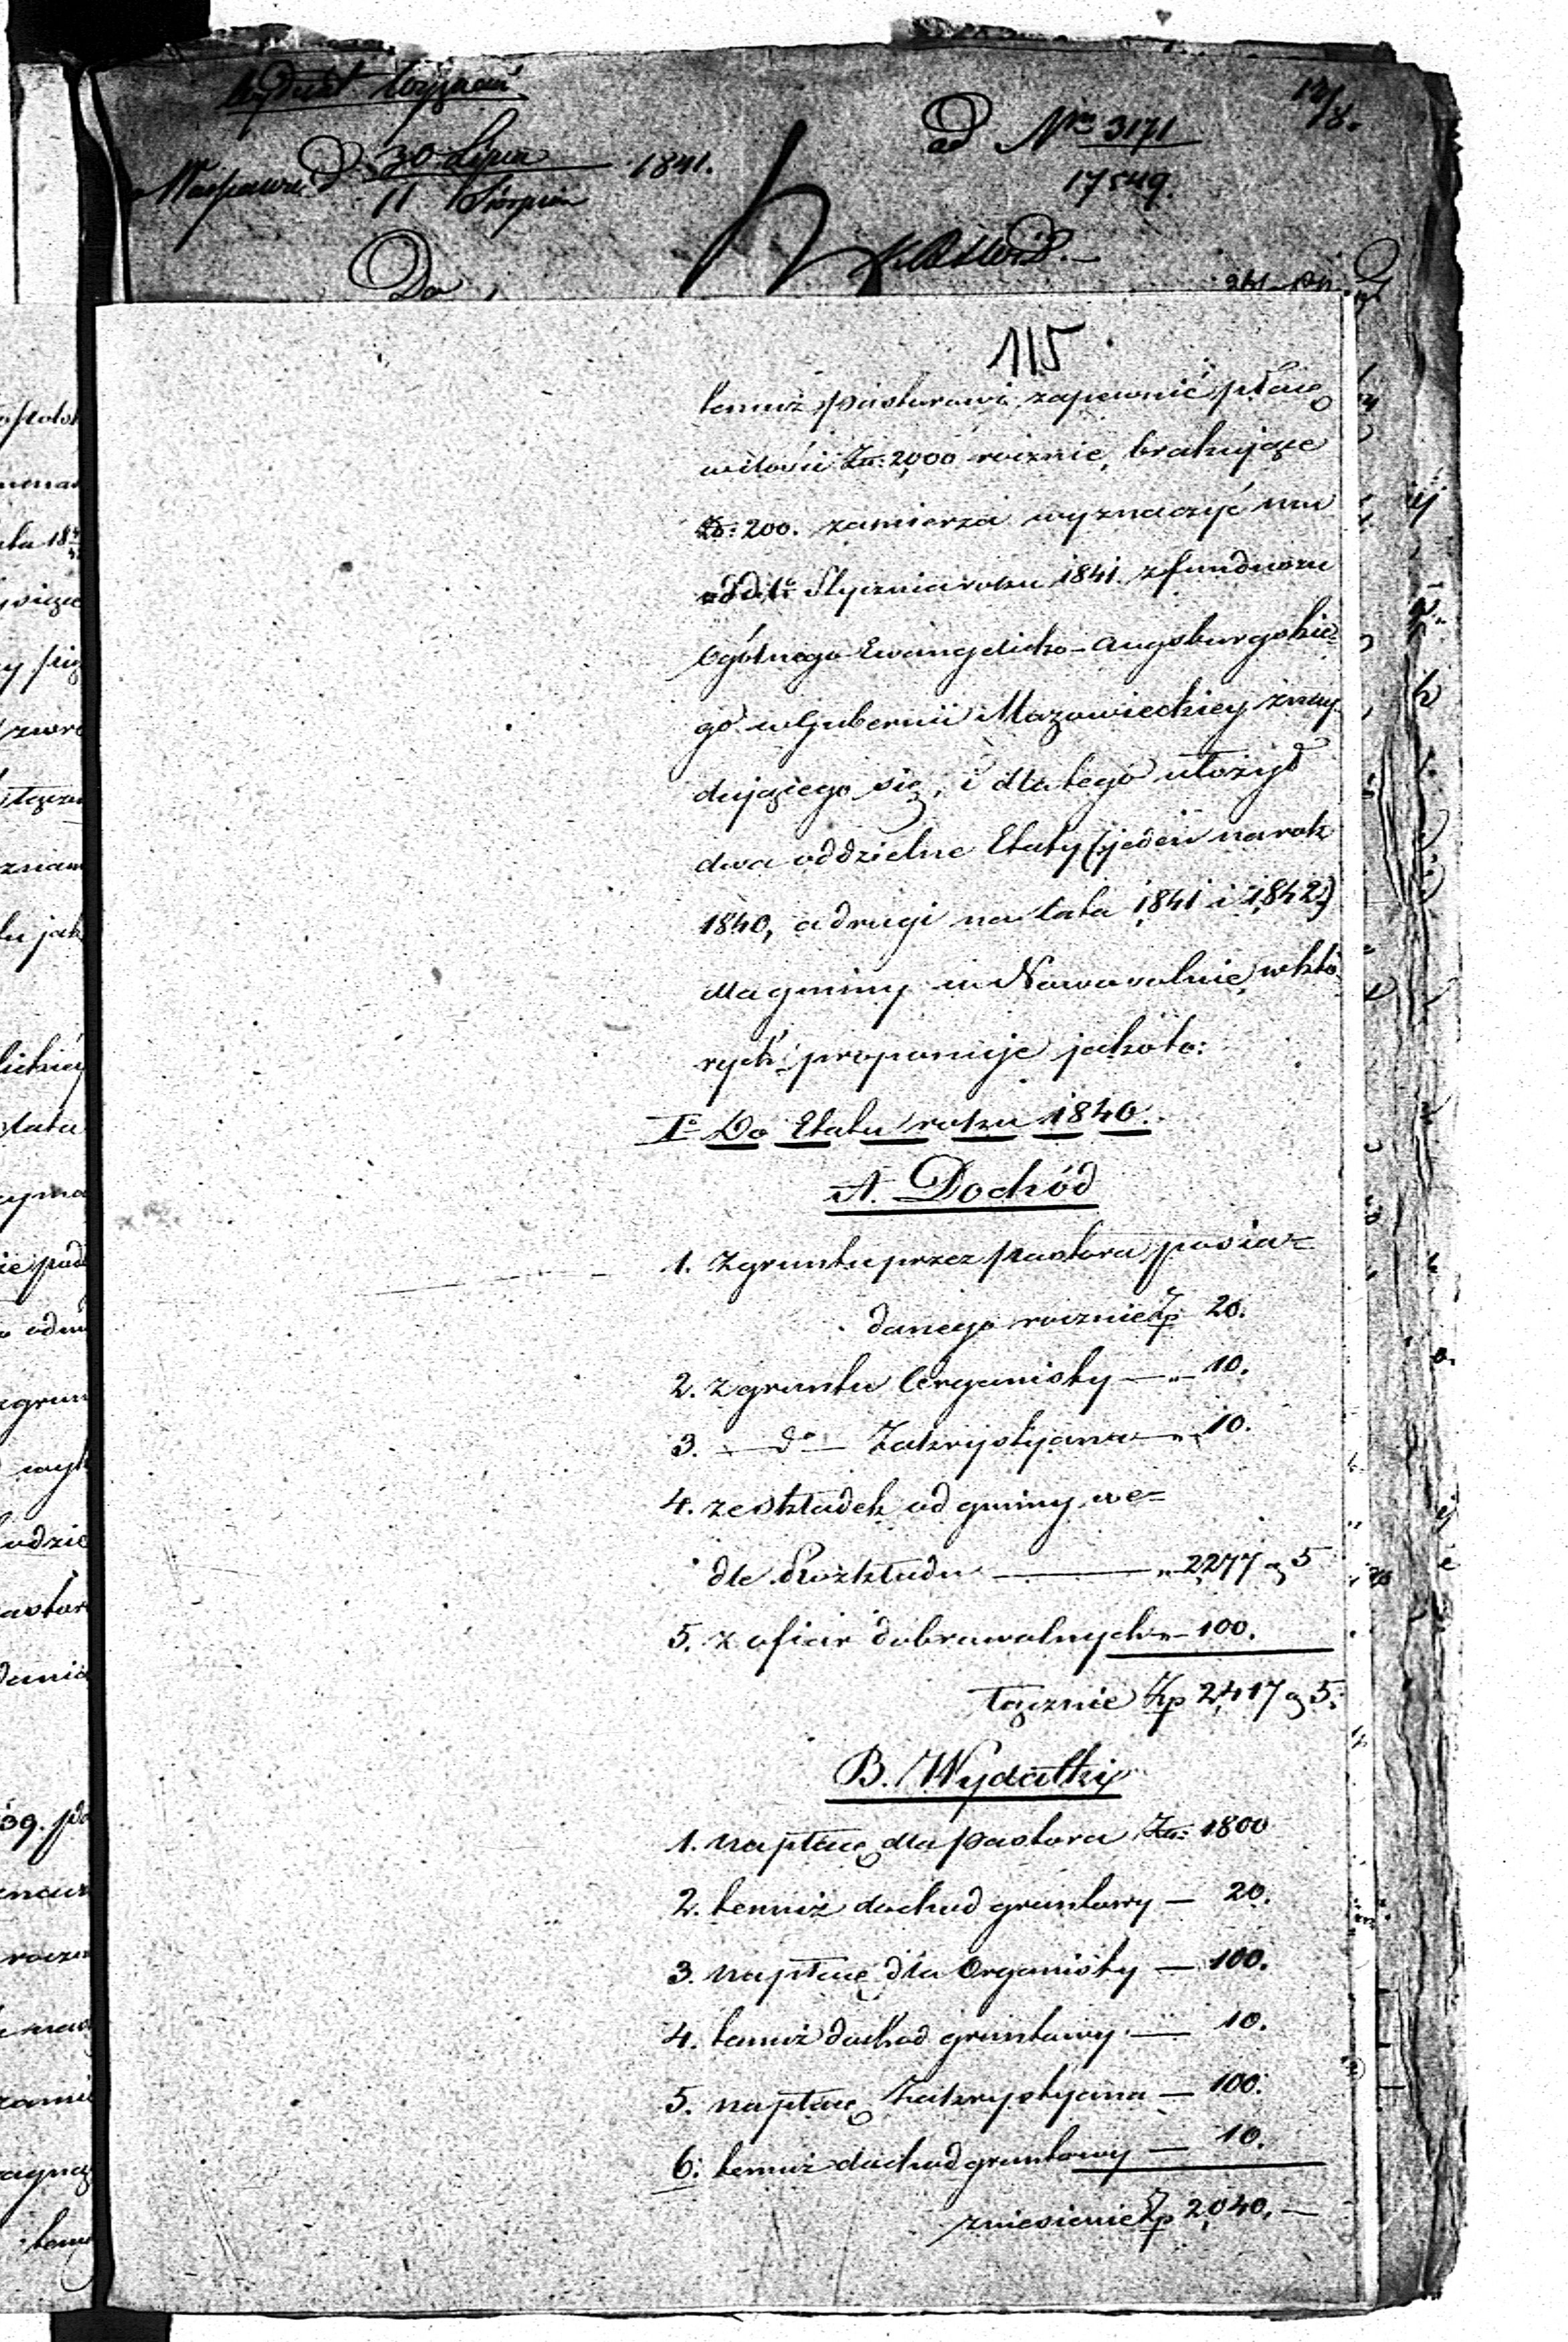 Wydział Wyznań
ad Nro 3171
17549.
12/8.
Warszawa d 30 Lipca 1841.
11 Sierpnia
Do
115
temuż pastorowi zapewnić płacę
w ilości Złt: 2000 rocznie, brakujące
Zł: 200. zamierza wyznaczyć mu
od d. 1o Stycznia roku 1841 z funduszu
Ogólnego Ewangelicko-Augsburgskie-
go w Gubernii Mazowieckiey znay-
dującego się, i dla tego ułożył
dwa oddzielne Etaty (jeden na rok
1840, a drugi na lata 1841 i 1842)
dla gminy w Nowosolnie, w któ-
rych proponuje jakoto:
Io Do Etatu roku 1840.
A. Dochód
1. Z gruntu przez pastora posia=
danego rocznie Zp 20.
2. z gruntu Organisty — „ — 10.
3. — do — Zakrystyana — „ 10.
4. ze składek od gminy we=
dle Rozkładu ——— „ 2277 g 5
5. z ofiar dobrowolnych „ — 100.
łącznie Złp 2,417 g 5.
B. Wydatki
1. na płacę dla pastora Złt: 1800
2. temuż dochod gruntowy — 20.
3. na płacę dla Organisty — 100.
4. temuż dochod gruntowy — 10.
5. na płacę Zakrystyana — 100.
6. temuż dochod gruntowy — 10.
zniesienie Zp 2,040. —